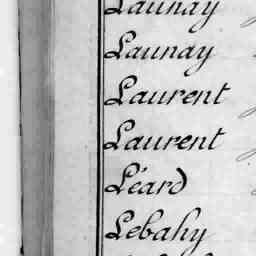 Launay
Launay
Laurent
Laurent
Léard
Lebahy